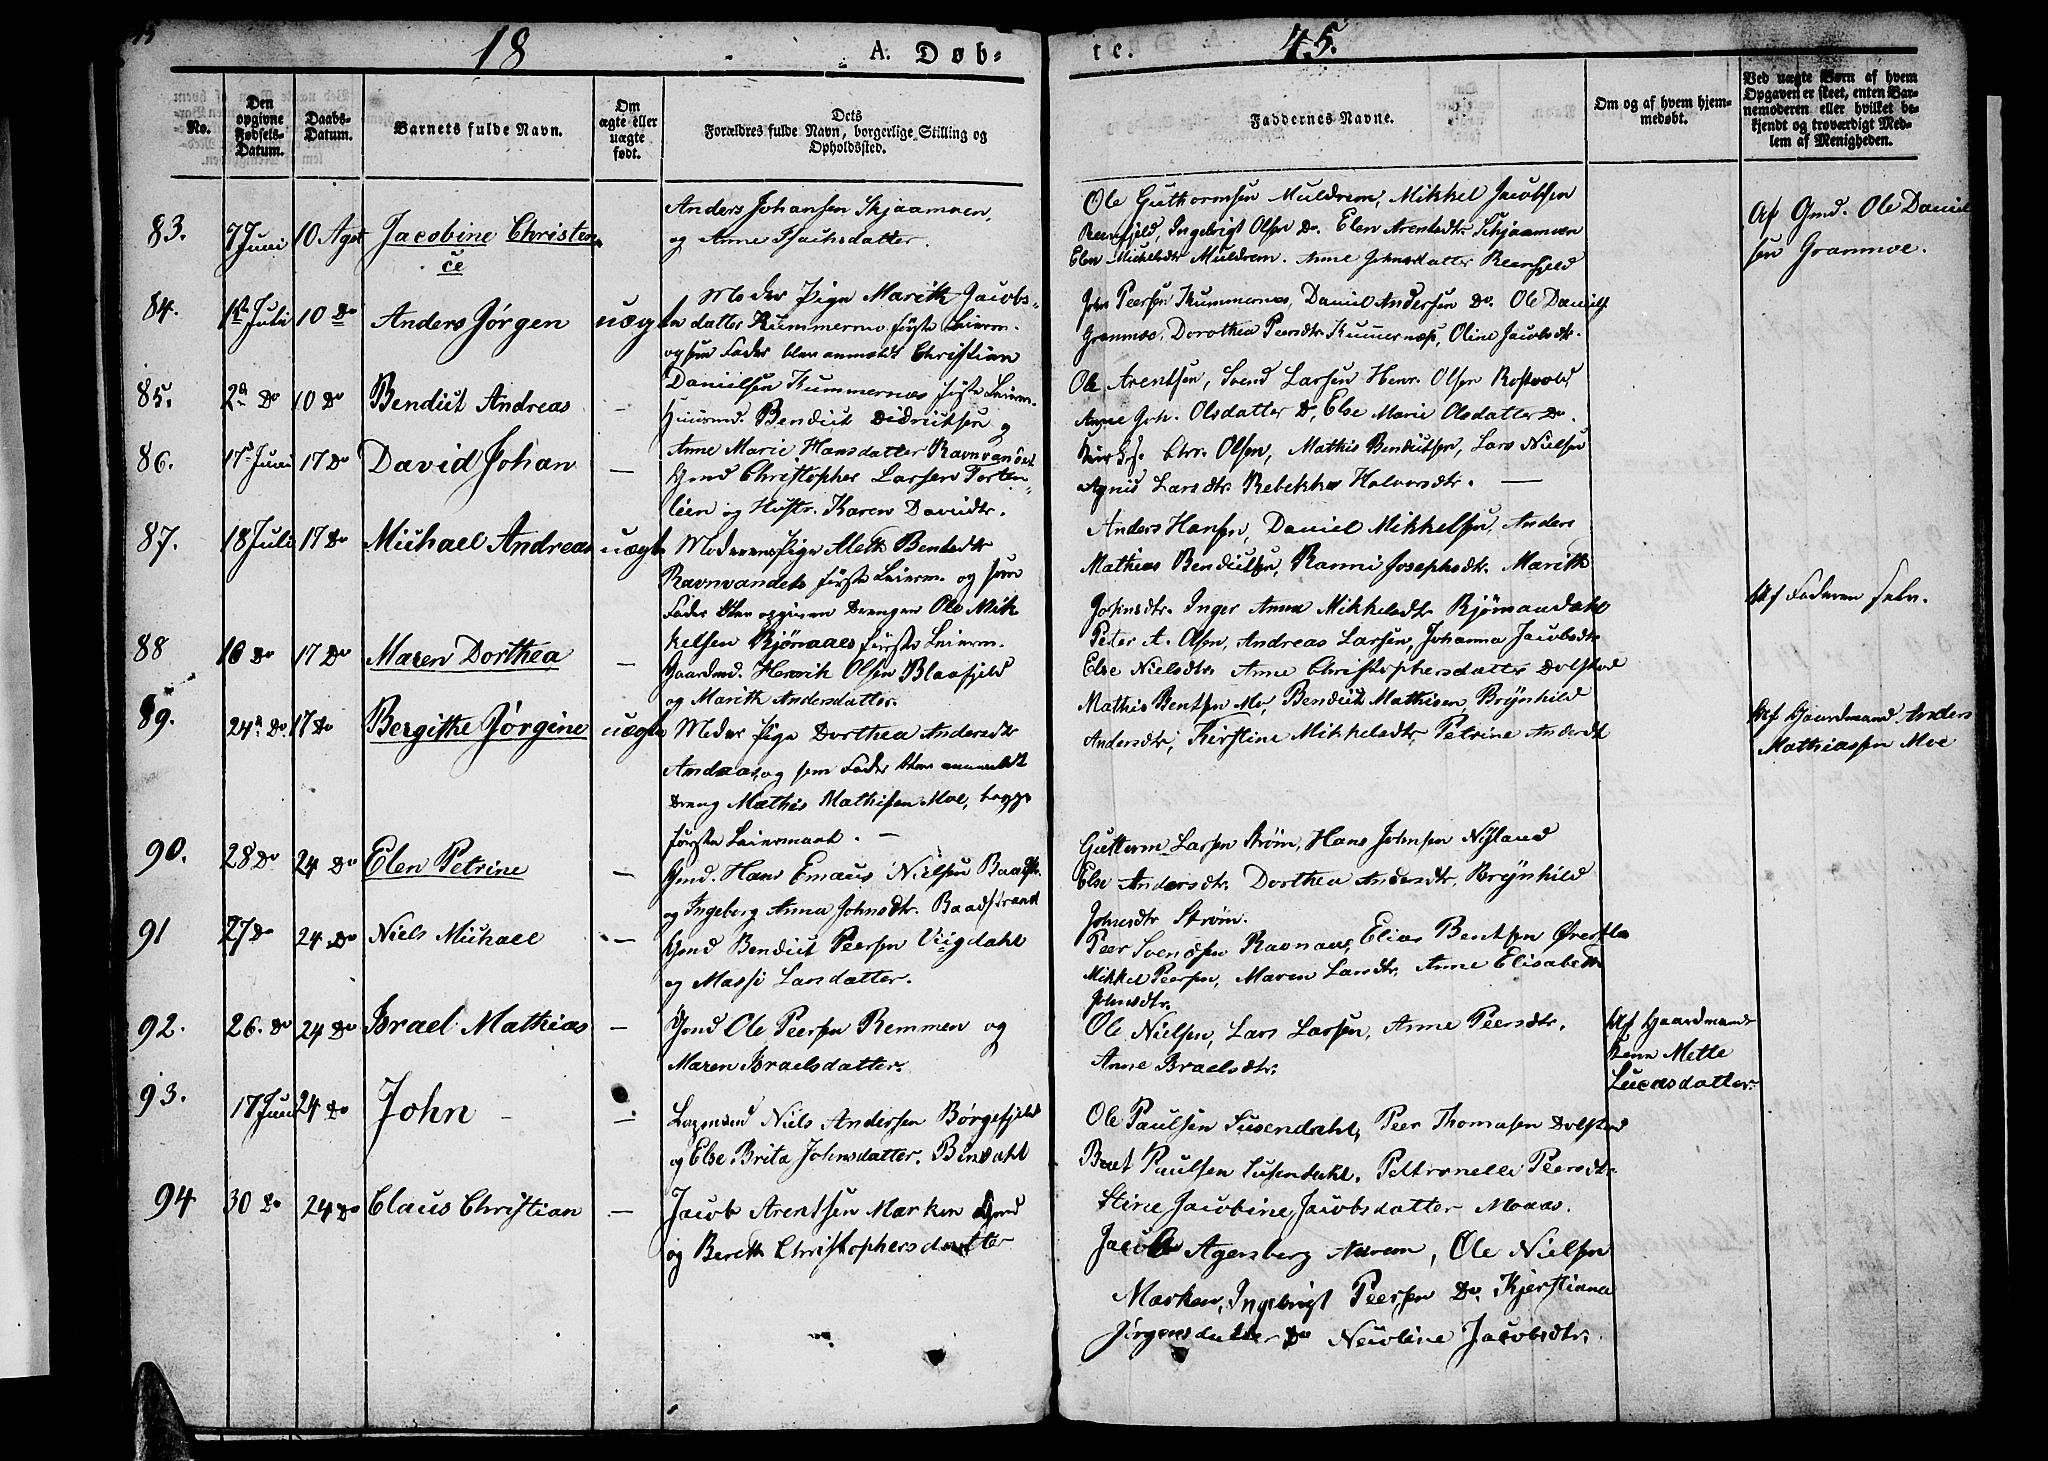 18 A. Døb- te. 45.
No.
Den opgivne Fødsels-Datum.
Daabs-Datum.
Barnets fulde Navn.
Om ægte eller uægte født.
Dets Forældres fulde Navn, borgerlige Stilling og Opholdssted.
Faddernes Navne.
Om og af hvem hjemmedøbt.
Ved uægte Børn af hvem Opgaven er skeet, enten Barnemoderen eller hvilket bekjendt og troværdigt Medlem af Menigheden.
83. 7 Juni 10 Agst Jacobine Christence
Anders Johansen Skjaamoen,
og Anne Isachsdatter.
Ole Guthormsen Muldrem, Mikkel Jacobsen
Reenfjeld, Ingebrigt Olsen Do. Elen Arentsdtr. Skjaamoen
Elen Mikkelsdtr Muldrem. Anne Johnsdatter Reenfjeld
Af Gmd. Ole Daniel
sen Granmoe.
84. Juli 10 Do Anders Jørgen uægte
Moder Pige Marith Jacobs-
datter Kummernæs første Leierm.
og som Fader blev anmeldt Christian
Danielsen Kummernæs første Leierm.
John Peersen Kummernæs, Daniel Andersen Do. Ole Daniels
Granmoe, Dorothea Peersdtr. Kummernæs, Oline Jacobsdtr.
85. 2d Do 10 Do Bendict Andreas —
Huusmd. Bendict Didriksen og
Anne Marie Hansdatter Ravnvandet
Ole Arentsen, Svend Larsen Henr. Olsen Rostvold
Anne Joh. Olsdatter Do, Else Marie Olsdatter Do.
86. 17 Juni 17 Do David Johan —
Gmd Christopher Larsen Forten-
leien og Hustr. Karen Davidtr.
Chr. Olsen, Mathis Bendictsen, Lars Nielsen
Agnis Larsdtr. Rebekka Halvorsdtr. —
87. 18 Juli 17 Do Michael Andreas uægte
Moderen Pige Aleth Bentsdtr
Ravnvandet første Leierm. og som
Fader blev opgiven Drengen Ole Mik
kelsen Bjønaaes første Leierm.
Anders Hansen, Daniel Mikkelsen, Anders
Mathias Bendictsen, Ranni Josephsdtr. Marith
Johnsdtr. Inger Anna Mikkelsdtr Bjønaadahl
Af Faderen selv.
88 16 Do 17 Do Maren Dorthea —
Gaardmd. Henrik Olsen Blaafjeld
og Marith Andersdatter.
Peter A. Olsen, Andreas Larsen, Johanna Jacobsdtr
Else Nielsdtr. Anne Christophersdatter Dolstad
89. 24d Do. 17 Do Bergithe Jørgine uægte
Moder Pige Dorthea Andersdtr
Andaas, og som Fader blev anmeldt
Dreng Mathis Mathisen Moe, begges
første Leiermaal. —
Mathis Bentsen Moe, Bendict Mathisen, Brynhild
Andersdtr, Kirstine Mikkelsdtr, Petrine Andersdt
Af Gaardmand Anders
Mathiassen Moe
90. 28 Do 24 Do Elen Petrine —
Gmd. Hans Emaus Nielsen Baadstr.
og Ingeborg Anna Johnsdtr. Baadstrand
Guttorm Larsen Strøm, Hans Johnsen Nyland
Else Andersdtr. Dorthea Andersdtr. Brynhild
Johnsdtr Strøm.
91 27 Do 24. Do Niels Michael —
Gmd Bendict Peersen Viigdahl
og Massi Larsdatter.
Peer Svendsen Ravnaae, Elias Bentsen
Mikkel Peersen, Maren Larsdtr. Anne Elisabeth
Johnsdtr.
92. 26. Do 24 Do Israel Mathias —
Gmd Ole Peersen Remmen og
Maren Israelsdatter.
Ole Nielsen, Lars Larsen, Anne Peersdtr.
Anne Israelsdtr.
Af Gaardmands
Kone Mette
Lucasdatter.
93. 17 Juni 24 Do John —
Lapmand Niels Andersen Børgefjeld
og Else Brita Johnsdatter. Bindahl
Ole Paulsen Susendahl, Peer Thomasen Dolstad
Paulsen Susendahl. Pettronelle Peersdtr
Stine Jacobine Jacobsdatter Moaas.
94 30 Do 24 Do Claus Christian —
Jacob Arentsen Marken Gmd
og Bereth Christophersdatter
Jacob Agersborg Aarem, Ole Nielsen
Marken, Ingebrigt Peersen Do. Kjerstianna
Jørgensdatter Do Nicoline Jacobsdtr.